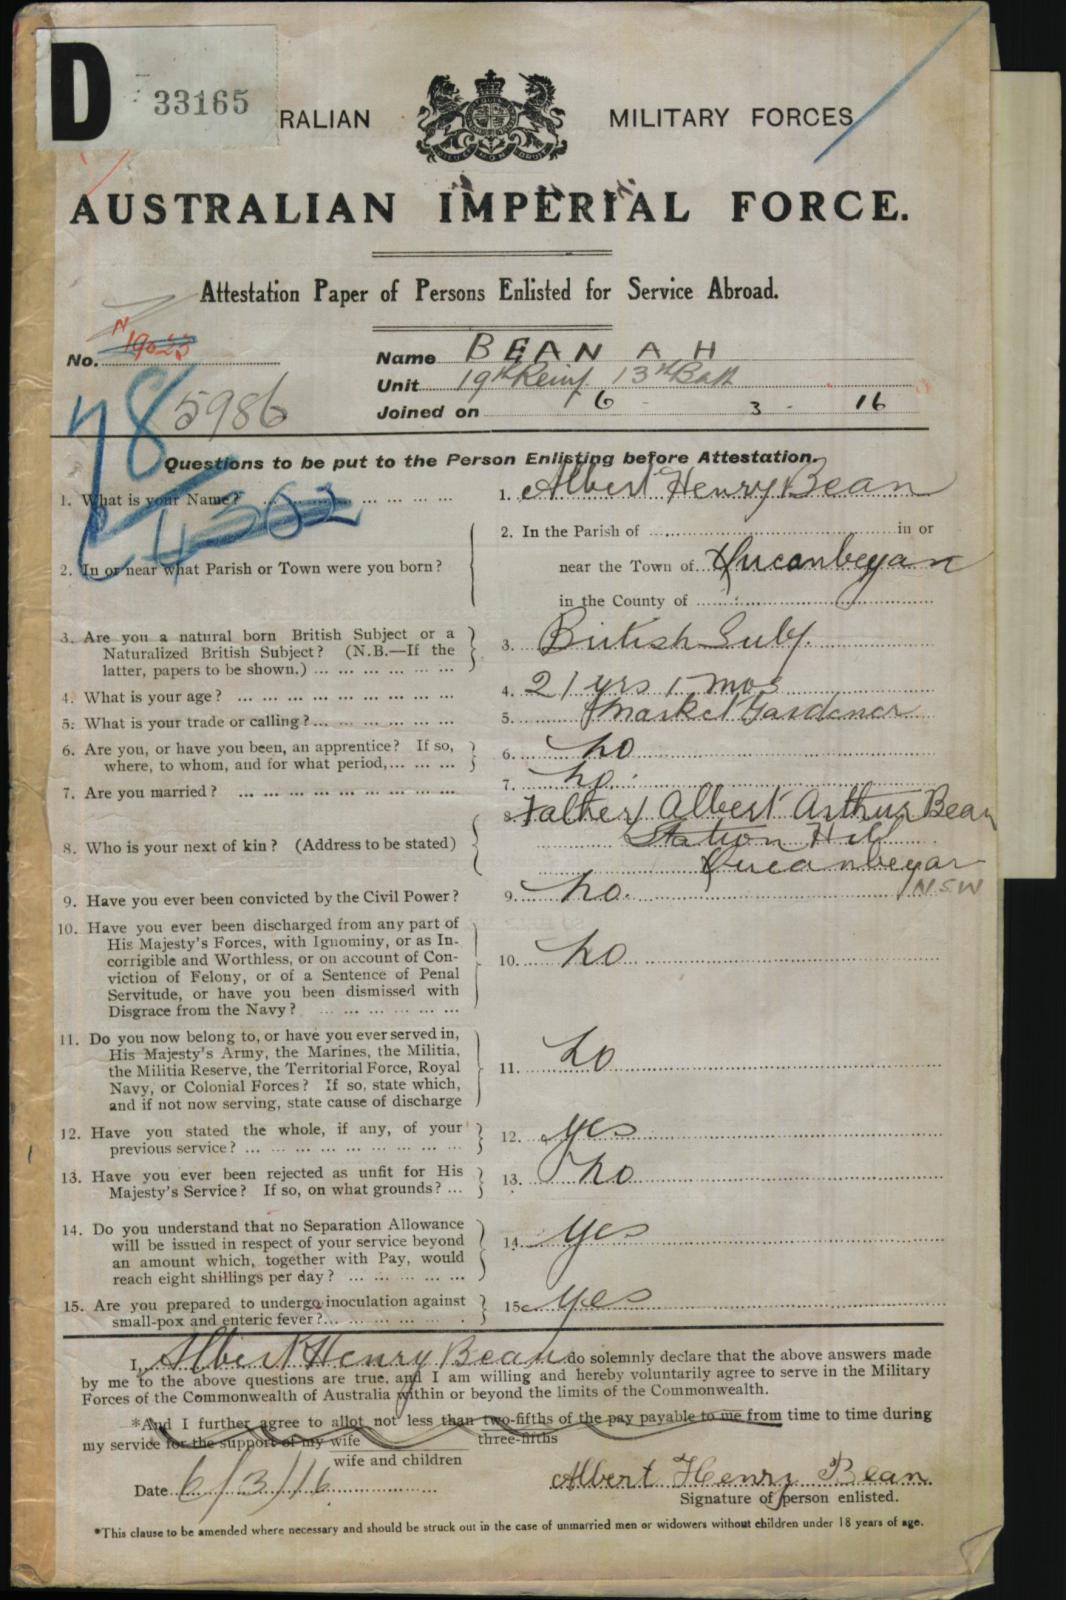 D 33165
RALIAN MILITARY FORCES
AUSTRALIAN IMPERIAL FORCE.
Attestation Paper of Persons Enlisted for Service Abroad.
No. N 19023
Name BEAN A H
Unit 19th Reinf 13th Batt
5986
Joined on 6 - 3 - 16
Questions to be put to the Person Enlisting before Attestation.
1. What is your Name? ... ... ... ... ...
1. Albert Henry Bean
2. In or near what Parish or Town were you born?
2. In the Parish of ... in or
near the Town of Queanbeyan
in the County of ...
3. Are you a natural born British Subject or a
Naturalized British Subject? (N.B.—If the
latter, papers to be shown.) ... ... ... ... ...
3. British Subj.
4. What is your age? ... ... ... ... ... ... ...
4. 21 yrs 1 mos
5. What is your trade or calling? ... ... ... ... ...
5. Market Gardener
6. Are you, or have you been, an apprentice? If so,
where, to whom, and for what period, ... ... ...
6. no
7. Are you married? ... ... ... ... ... ... ...
7. no.
8. Who is your next of kin? (Address to be stated)
8. Father Albert Arthur Bean
Station Hill
Queanbeyan
NSW
9. Have you ever been convicted by the Civil Power?
9. no.
10. Have you ever been discharged from any part of
His Majesty's Forces, with Ignominy, or as In-
corrigible and Worthless, or on account of Con-
viction of Felony, or of a Sentence of Penal
Servitude, or have you been dismissed with
Disgrace from the Navy? ... ... ... ... ...
10. no
11. Do you now belong to, or have you ever served in,
His Majesty's Army, the Marines, the Militia,
the Militia Reserve, the Territorial Force, Royal
Navy, or Colonial Forces? If so, state which,
and if not now serving, state cause of discharge
11. no
12. Have you stated the whole, if any, of your
previous service? ... ... ... ... ... ... ...
12. yes
13. Have you ever been rejected as unfit for His
Majesty's Service? If so, on what grounds? ...
13. no
14. Do you understand that no Separation Allowance
will be issued in respect of your service beyond
an amount which, together with Pay, would
reach eight shillings per day? ... ... ... ...
14. yes
15. Are you prepared to undergo inoculation against
small-pox and enteric fever? ... ... ... ... ...
15. yes
I, Albert Henry Bean do solemnly declare that the above answers made
by me to the above questions are true, and I am willing and hereby voluntarily agree to serve in the Military
Forces of the Commonwealth of Australia within or beyond the limits of the Commonwealth.
*And I further agree to allot not less than two-fifths of the pay payable to me from time to time during
my service for the support of my wife three-fifths
wife and children
Date 6/3/16
Albert Henry Bean
Signature of person enlisted.
*This clause to be amended where necessary and should be struck out in the case of unmarried men or widowers without children under 18 years of age.